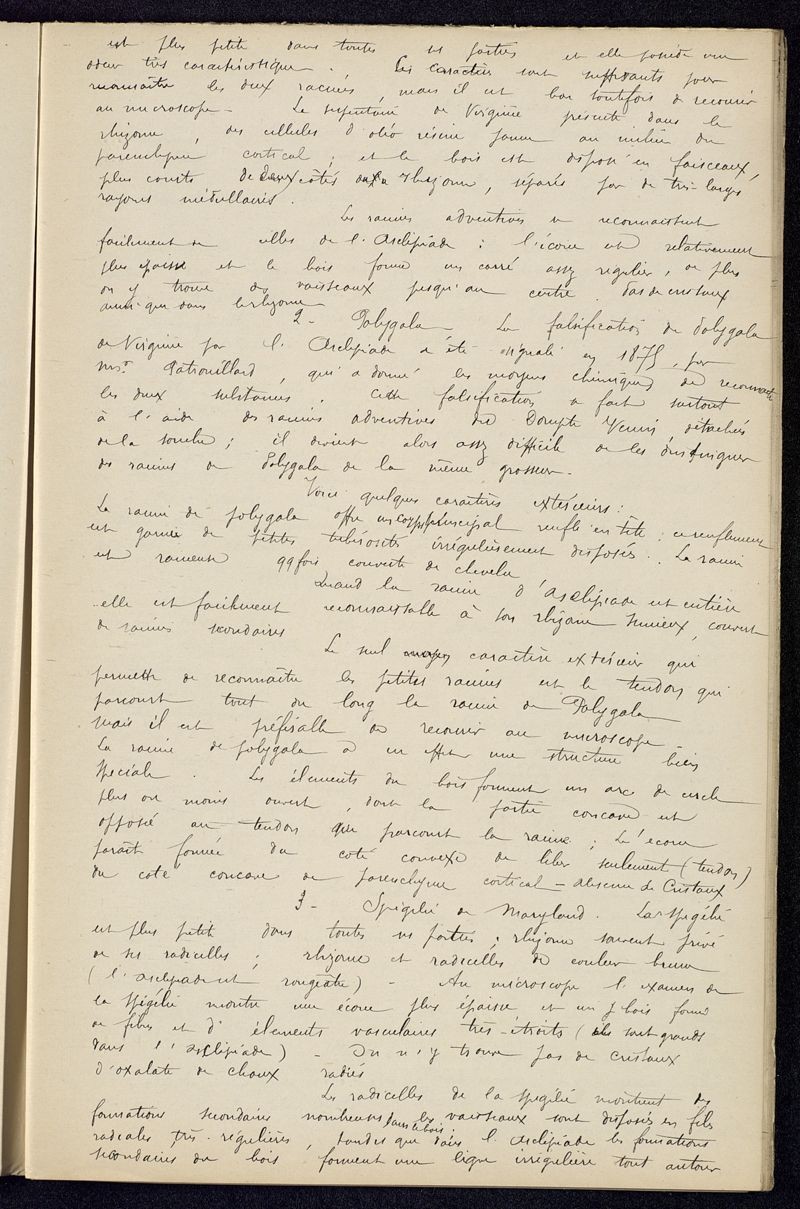 est plus petite dans toutes ses parties et elle possède une
odeur très caractéristique. Ces caractères sont suffisants pour
reconnaître les deux racines, mais il est bon toutefois de recourir
au microscope - La serpentaire de Virginie présente dans le
rhizome, des cellules d'oléo résine jaune au milieu du
parenchyme cortical ; et le bois est disposé en faisceaux,
plus courts de deux côtés du rhizome, séparés par de très larges
rayons médullaires.
Les racines adventives se reconnaissent
facilement de celles de l'Asclépiade : l'écorce est relativement
plus épaisse et le bois forme un carré assez régulier, de plus
on y trouve des vaisseaux jusqu'au centre. Pas de cristaux
ainsi que dans le rhizome
2 - Polygala - La falsification du Polygala
de Virginie par l'Asclépiade a été signalé en 1875, par
Mr. Patrouillard, qui a donné les moyens chimiques de reconnaître
les deux substances. Cette falsification se fait surtout
à l'aide des racines adventives du Dompte Venin détachés
de la souche ; il devient alors assez difficile de les distinguer
des racines de Polygala de la même grosseur -
Voici quelques caractères extérieurs :
La racine de polygala offre un corps principal renflé en tête ; ce renflement
est garnie de petites tubérosités irrégulièrement disposés. La racine
est rameuse qqfois couverte de chevelu
Quand la racine d'Asclépiade est entière
elle est facilement reconnaissable à son rhizome noueux, couvert
de racines secondaires
Le seul caractère extérieur qui
permette de reconnaître les petites racines est le tendon qui
parcourt tout du long la racine de Polygala
Mais il est préférable de recourir au microscope -
La racine de polygala a en effet une structure bien
spéciale. Les éléments du bois forment un arc de cercle
plus ou moins ouvert, dont la partie concave est
opposé au tendon qui parcourt la racine ; L'écorce
paraît formée du coté convexe de liber seulement (tendon)
du coté concave de parenchyme cortical - absence de Cristaux
3 - Spigélie de Maryland. La spigélie
est plus petit dans toutes ses parties ; rhizome souvent privé
de ses radicelles ; rhizome et radicelles de couleur brune
(l'asclépiade est rougeâtre) - Au microscope l'examen de
la spigélie montre une écorce plus épaisse et un bois formé
de fibres et d'éléments vasculaires très-étroits (ils sont grands
dans l'asclépiade) - On n'y trouve pas de cristaux
d'oxalate de chaux radiés
Les radicelles de la spigélie montrent des
formations secondaires nombreuses dans le bois les vaisseaux sont disposés en files
radiales très-régulières, tandis que dans l'Asclépiade les formations
secondaires du bois forment une ligne irrégulière tout autour